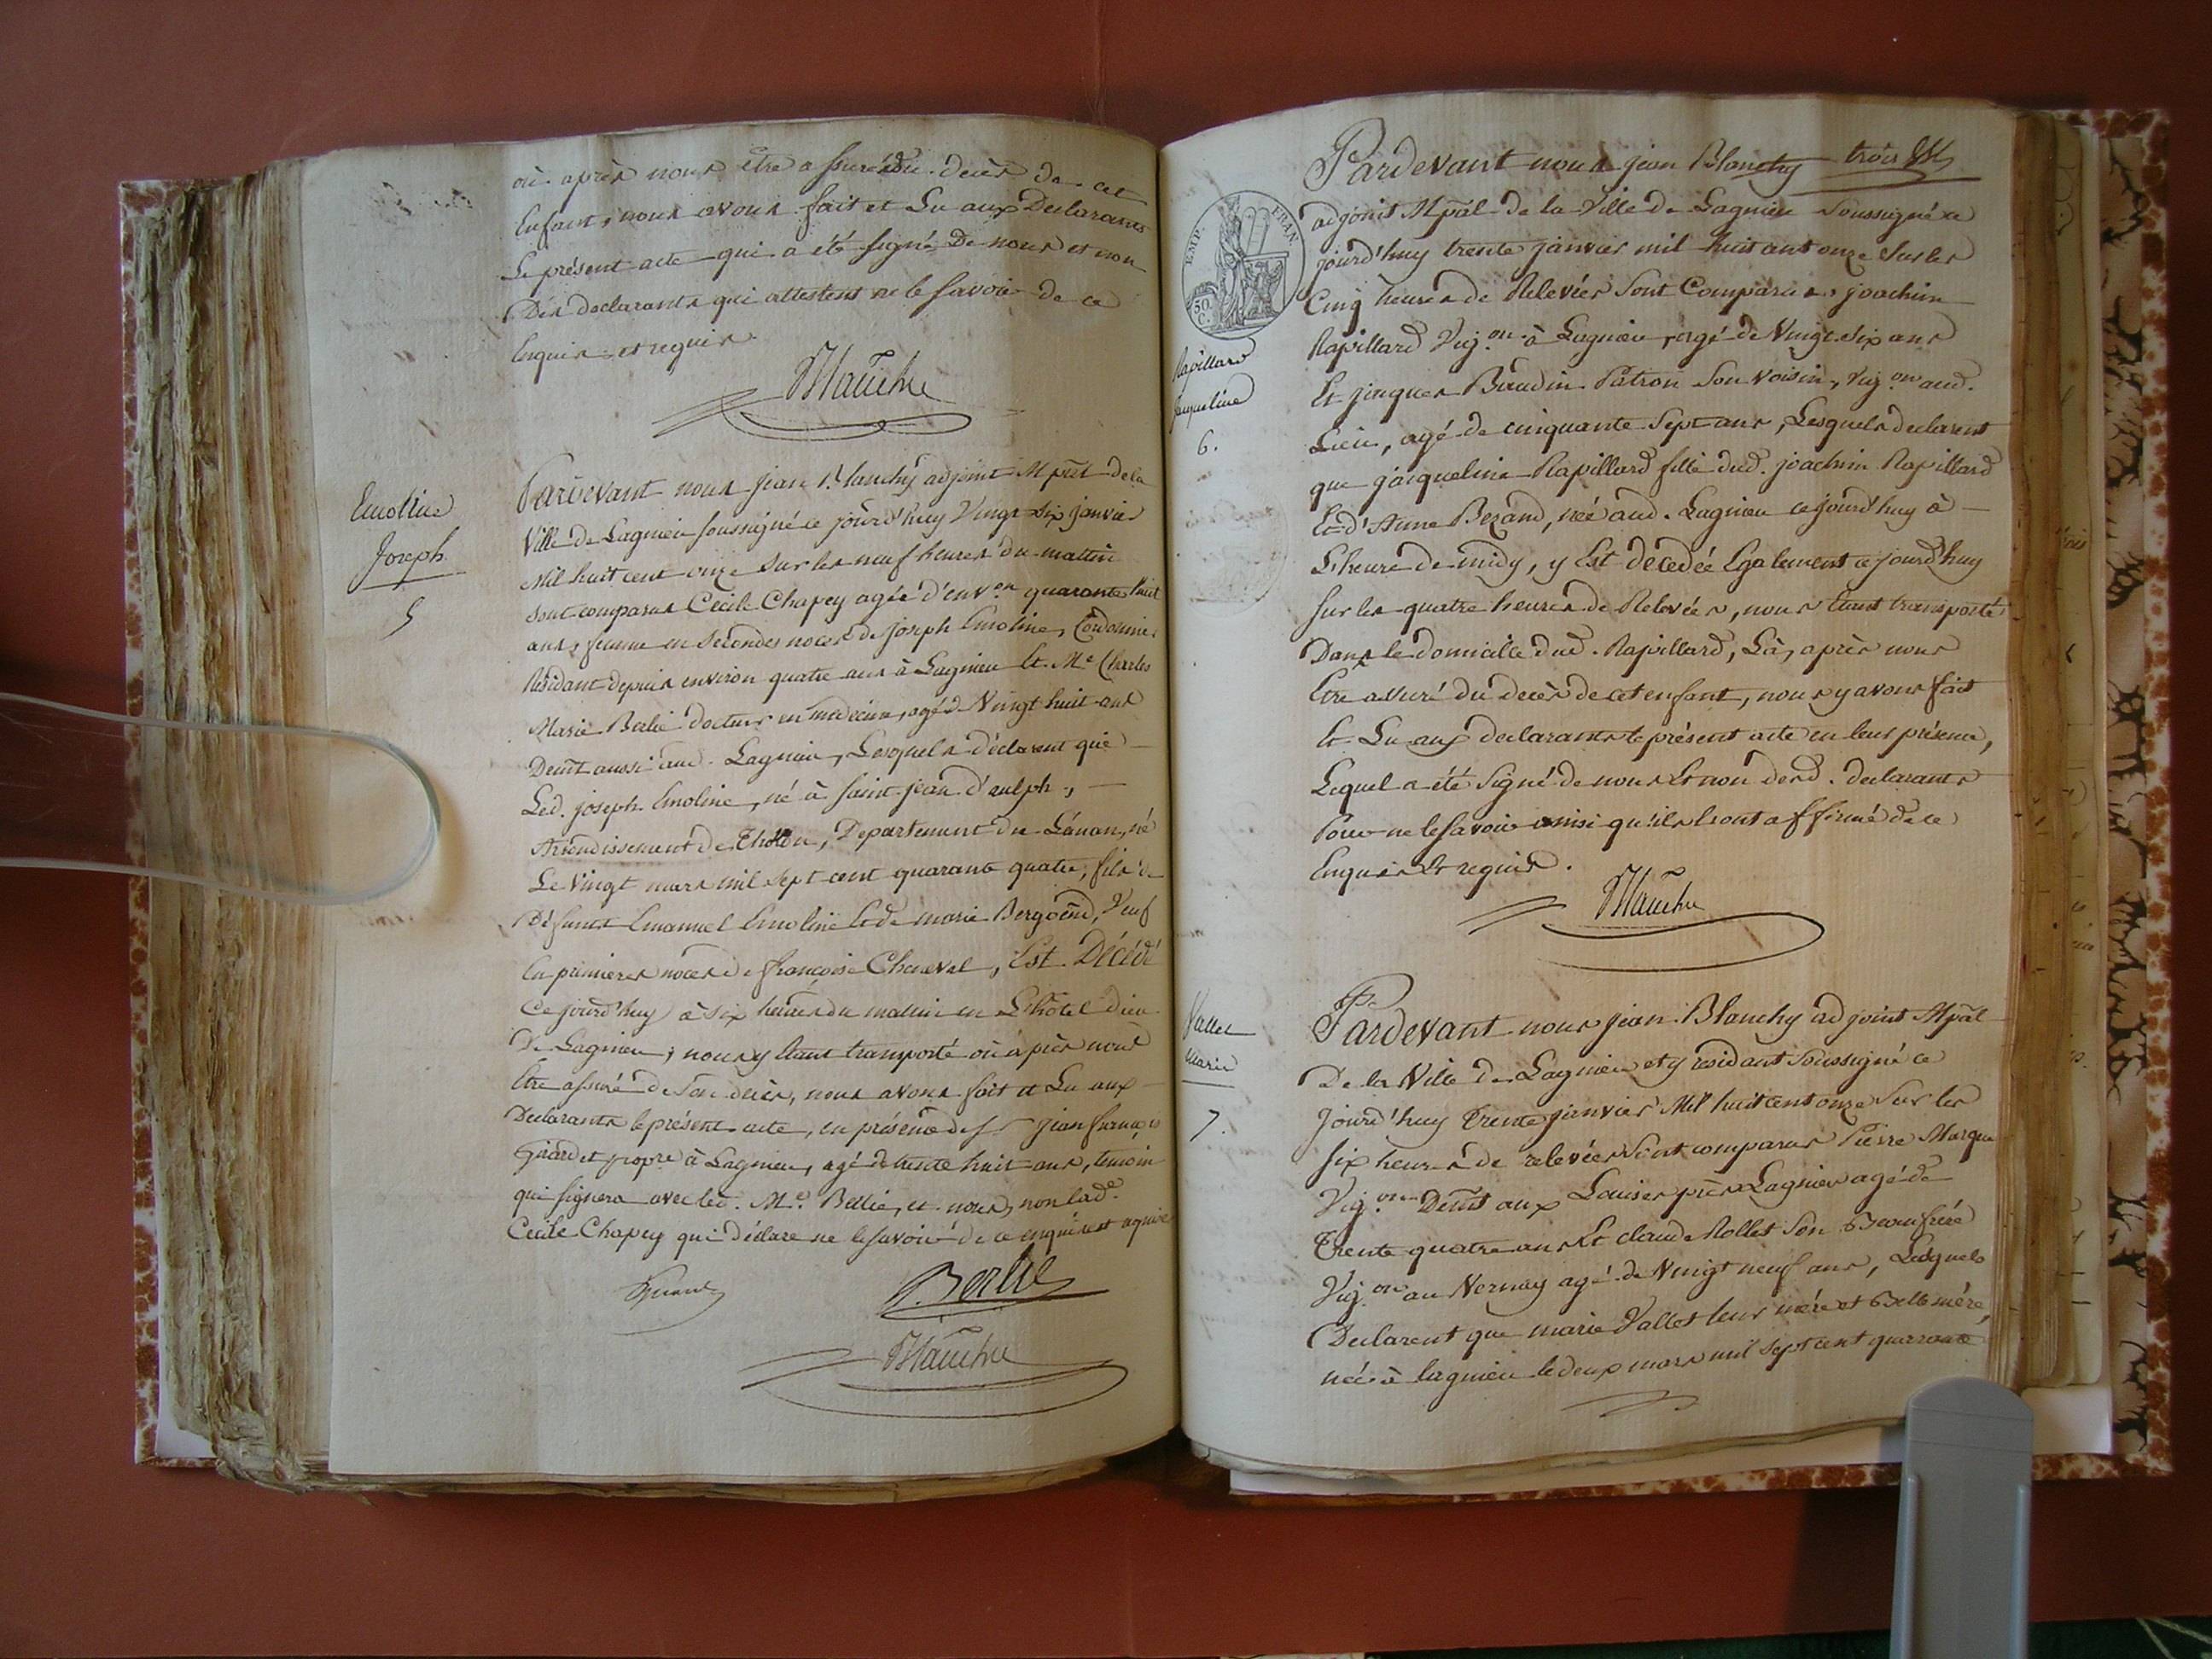 où après nous être assuré du decès de cet
Enfant, nous avons fait et Lu aux Declarants
Le présent acte qui a été signé De nous et non
Des declarants qui attestent ne le savoir de ce
Enquis et requis
Blanchy
Emoline
Joseph
5
Pardevant nous jean Blanchy adjoint Mpãl de la
Ville de Lagnieu soussigné ce jourd'huy Vingt six janvier
Mil huit cent onze sur les neuf heures du mattin
sont comparus Cécile Chapey agée d'env.on quarante huit
ans, femme en secondes noces de joseph Emoline, Cordonnier
Résidant depuis environ quatre ans à Lagnieu Et M.e Charles
Marie Berlié docteur en médecine, agé de Vingt huit ans
Demt aussi aud. Lagnieu, Lesquels déclarent que
Led. joseph Emoline, né à saint jean d'aulph,
Arrondissement de Thonon, Département du Léman, né
Le vingt mars mil sept cent quarante quatre, fils de
Défunts Emanuel Emoline et de marie Bergoënd, Veuf
En premieres nôces de françoise Cheneval, Est Décédé
Ce jourd'huy à six heures du mattin en L'hôtel dieu
De Lagnieu, nous y étant transporté où après nous
Etre assuré de son decès, nous avons fait et Lu aux
Declarants le présent acte, en présence de sr jean françois
Girardet propre à Lagnieu, agé de trente huit ans, temoin
qui signera avec led. M.e Berlié, et nous, non lad.e
Cecile Chapey qui déclare ne le savoir de ce enquise et requise
Berlié
Blanchy
trois
Pardevant nous jean Blanchy
adjoint Mpãl de la Ville de Lagnieu soussigné ce
jourd'huy trente janvier mil huit cent onze sur les
Cinq heures de Relevées sont Comparus, joachim
EMP. FRAN.
50 C.
Rapillard
jacqueline
6.
Rapillard Vig.on à Lagnieu, agé de Vingt six ans
Et jacques Baudin Patron son voisin, vig.on aud.
Lieu, agé de cinquante sept ans, Lesquels declarent
que jacqueline Rapillard fille dud. joachim Rapillard
Et d'Anne Bezand, née aud. Lagnieu ce jourd'huy à
L'heure de midy, y Est décédée Egalement ce jourd'huy
sur les quatre heures de Relevées, nous étant transporté
Dans le domicille dud. Rapillard, Là, après nous
Etre assuré du decès de cet enfant, nous y avons fait
Et Lu aux declarants le présent acte en leur présence,
Lequel a été signé de nous Et non desd. declarants
Pour ne le savoir ainsi qu'ils l'ont affirmé de ce
Enquis Et requis.
Blanchy
Vallet
marie
7.
Pardevant nous jean Blanchy adjoint Mpãl
De la Ville de Lagnieu et y résidant soussigné ce
jourd'huy Trente janvier Mil huit cent onze sur les
six heures de relevées sont comparus Pierre Marque
Vig.on Demt aux Louises près Lagnieu agé de
Trente quatre ans Et claude Rollet son Beaufrère
Vig.on au Vernay agé de Vingt neuf ans, Lesquels
Declarent que marie Vallet leur mère et Belle mère,
née à lagnieu le deux mars mil sept cent quarante